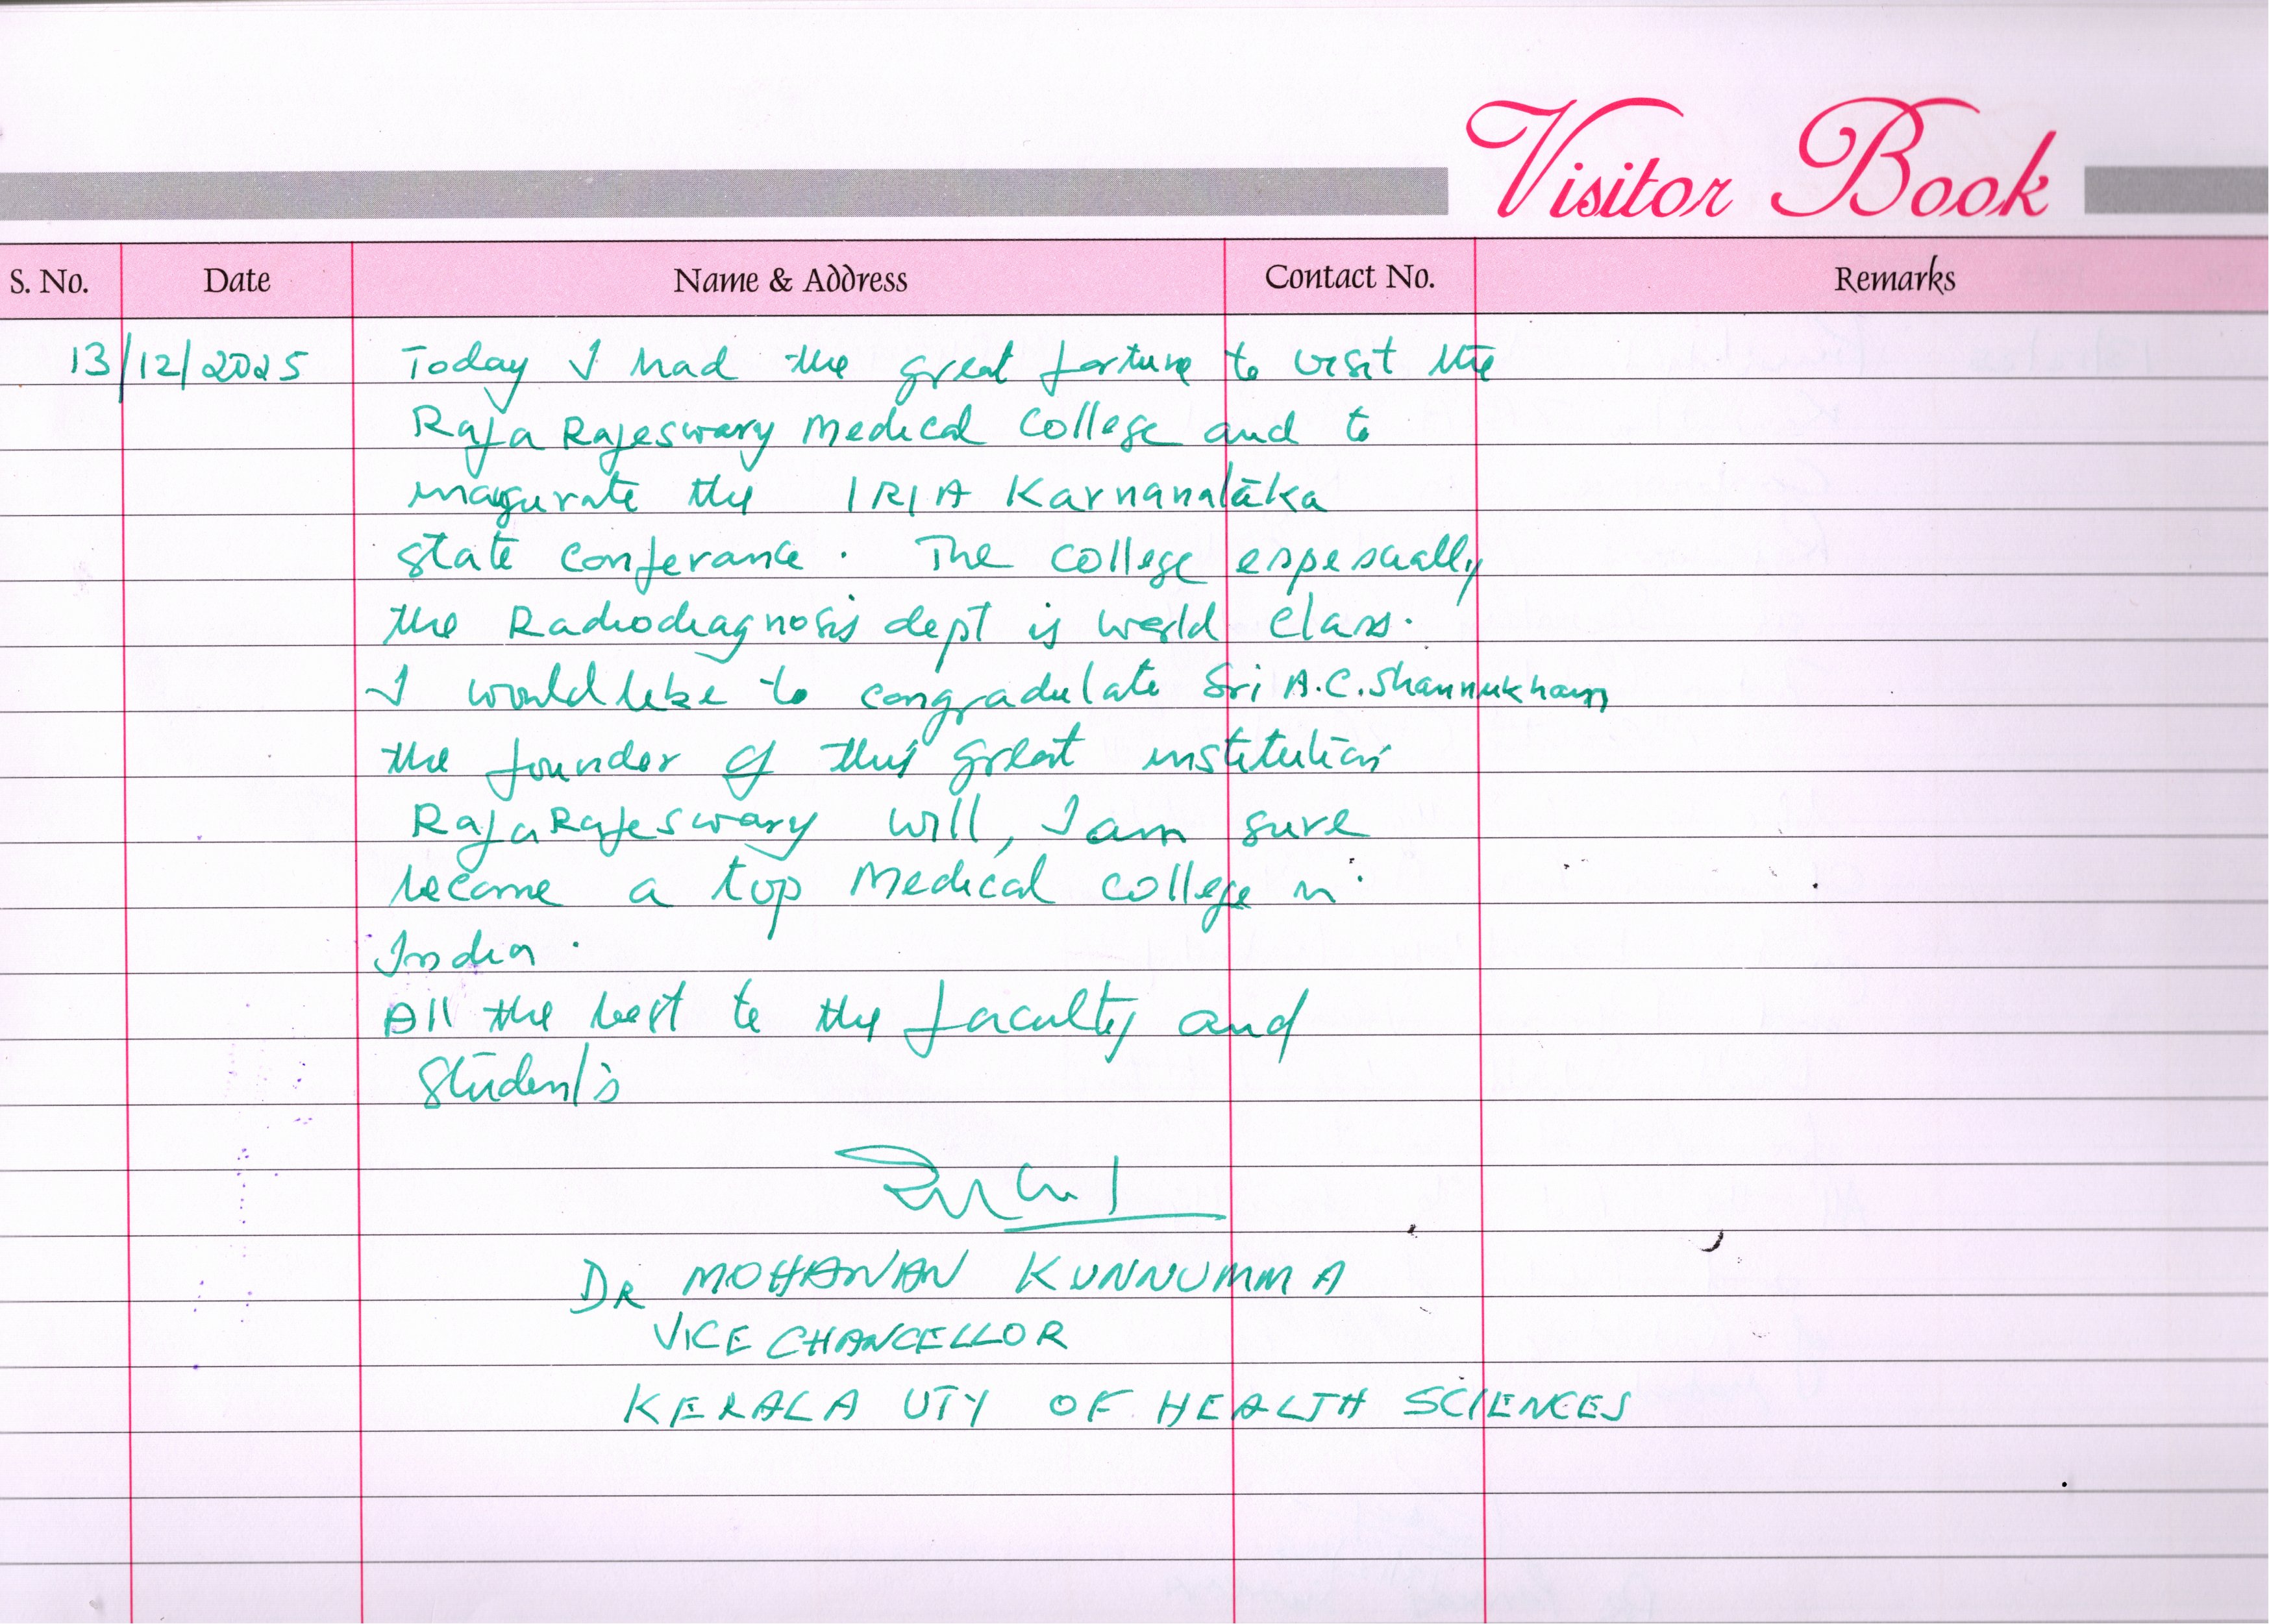 Visitor Book
S. No. Date Name & Address Contact No. Remarks
13/12/2025 Today I had the great fortune to visit the
Raja Rajeswary Medical College and to
inagurate the IRIA Karnanataka
state conferance. The college espescially
the Radiodiagnosis dept is world class.
I would like to congradulate Sri A.C. Shannukham
the founder of this great institution
RajaRajeswary will, I am sure
become a top Medical college in
India.
All the best to the faculty and
students
DR MOHANAN KUNNUMMA
VICE CHANCELLOR
KERALA UTY OF HEALTH SCIENCES